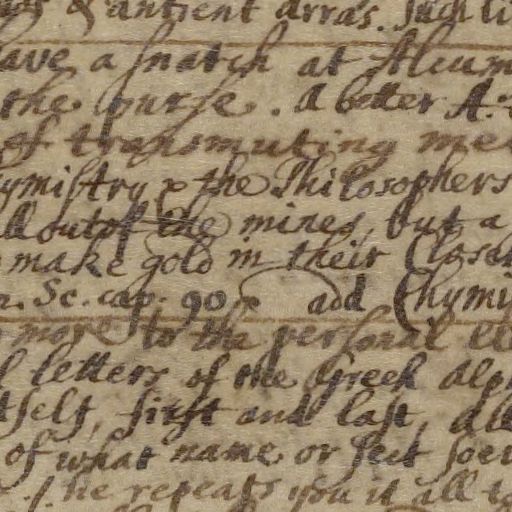 & antient arras. Such li
ave a snatch at Alcum
the purse. A better A
of transmuting me
ymistry & the Philosophers
ll out of the mines, but a
make gold in their
Sc. cap. 90 add Chymi
more to the personal el
l letters of the Greek alp
tself, first and last, all
of what name or sect soev
he repeats you it all to